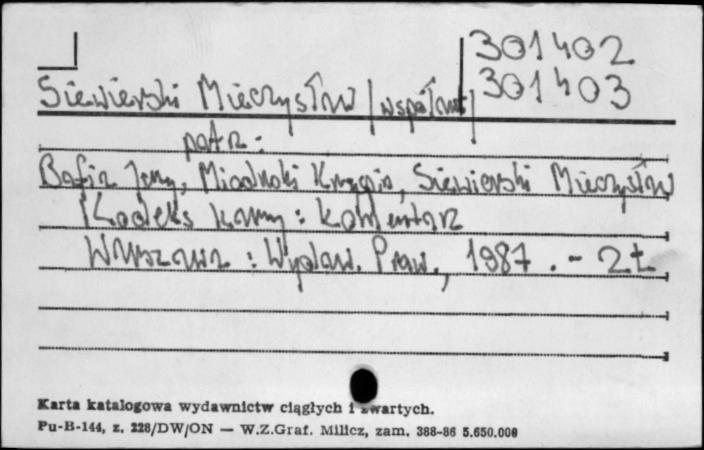 301402
301403
Siewierski Mieczysław /współaut/
patrz:
Bafia Jerzy, Mioduski Krzysztof, Siewierski Mieczysław
Kodeks karny : komentarz
Warszawa : Wydaw. Praw., 1987. - 2 t.
Karta katalogowa wydawnictw ciągłych i zwartych.
Pu-B-144, z. 228/DW/ON — W.Z.Graf. Milicz, zam. 388-86 5.650.000